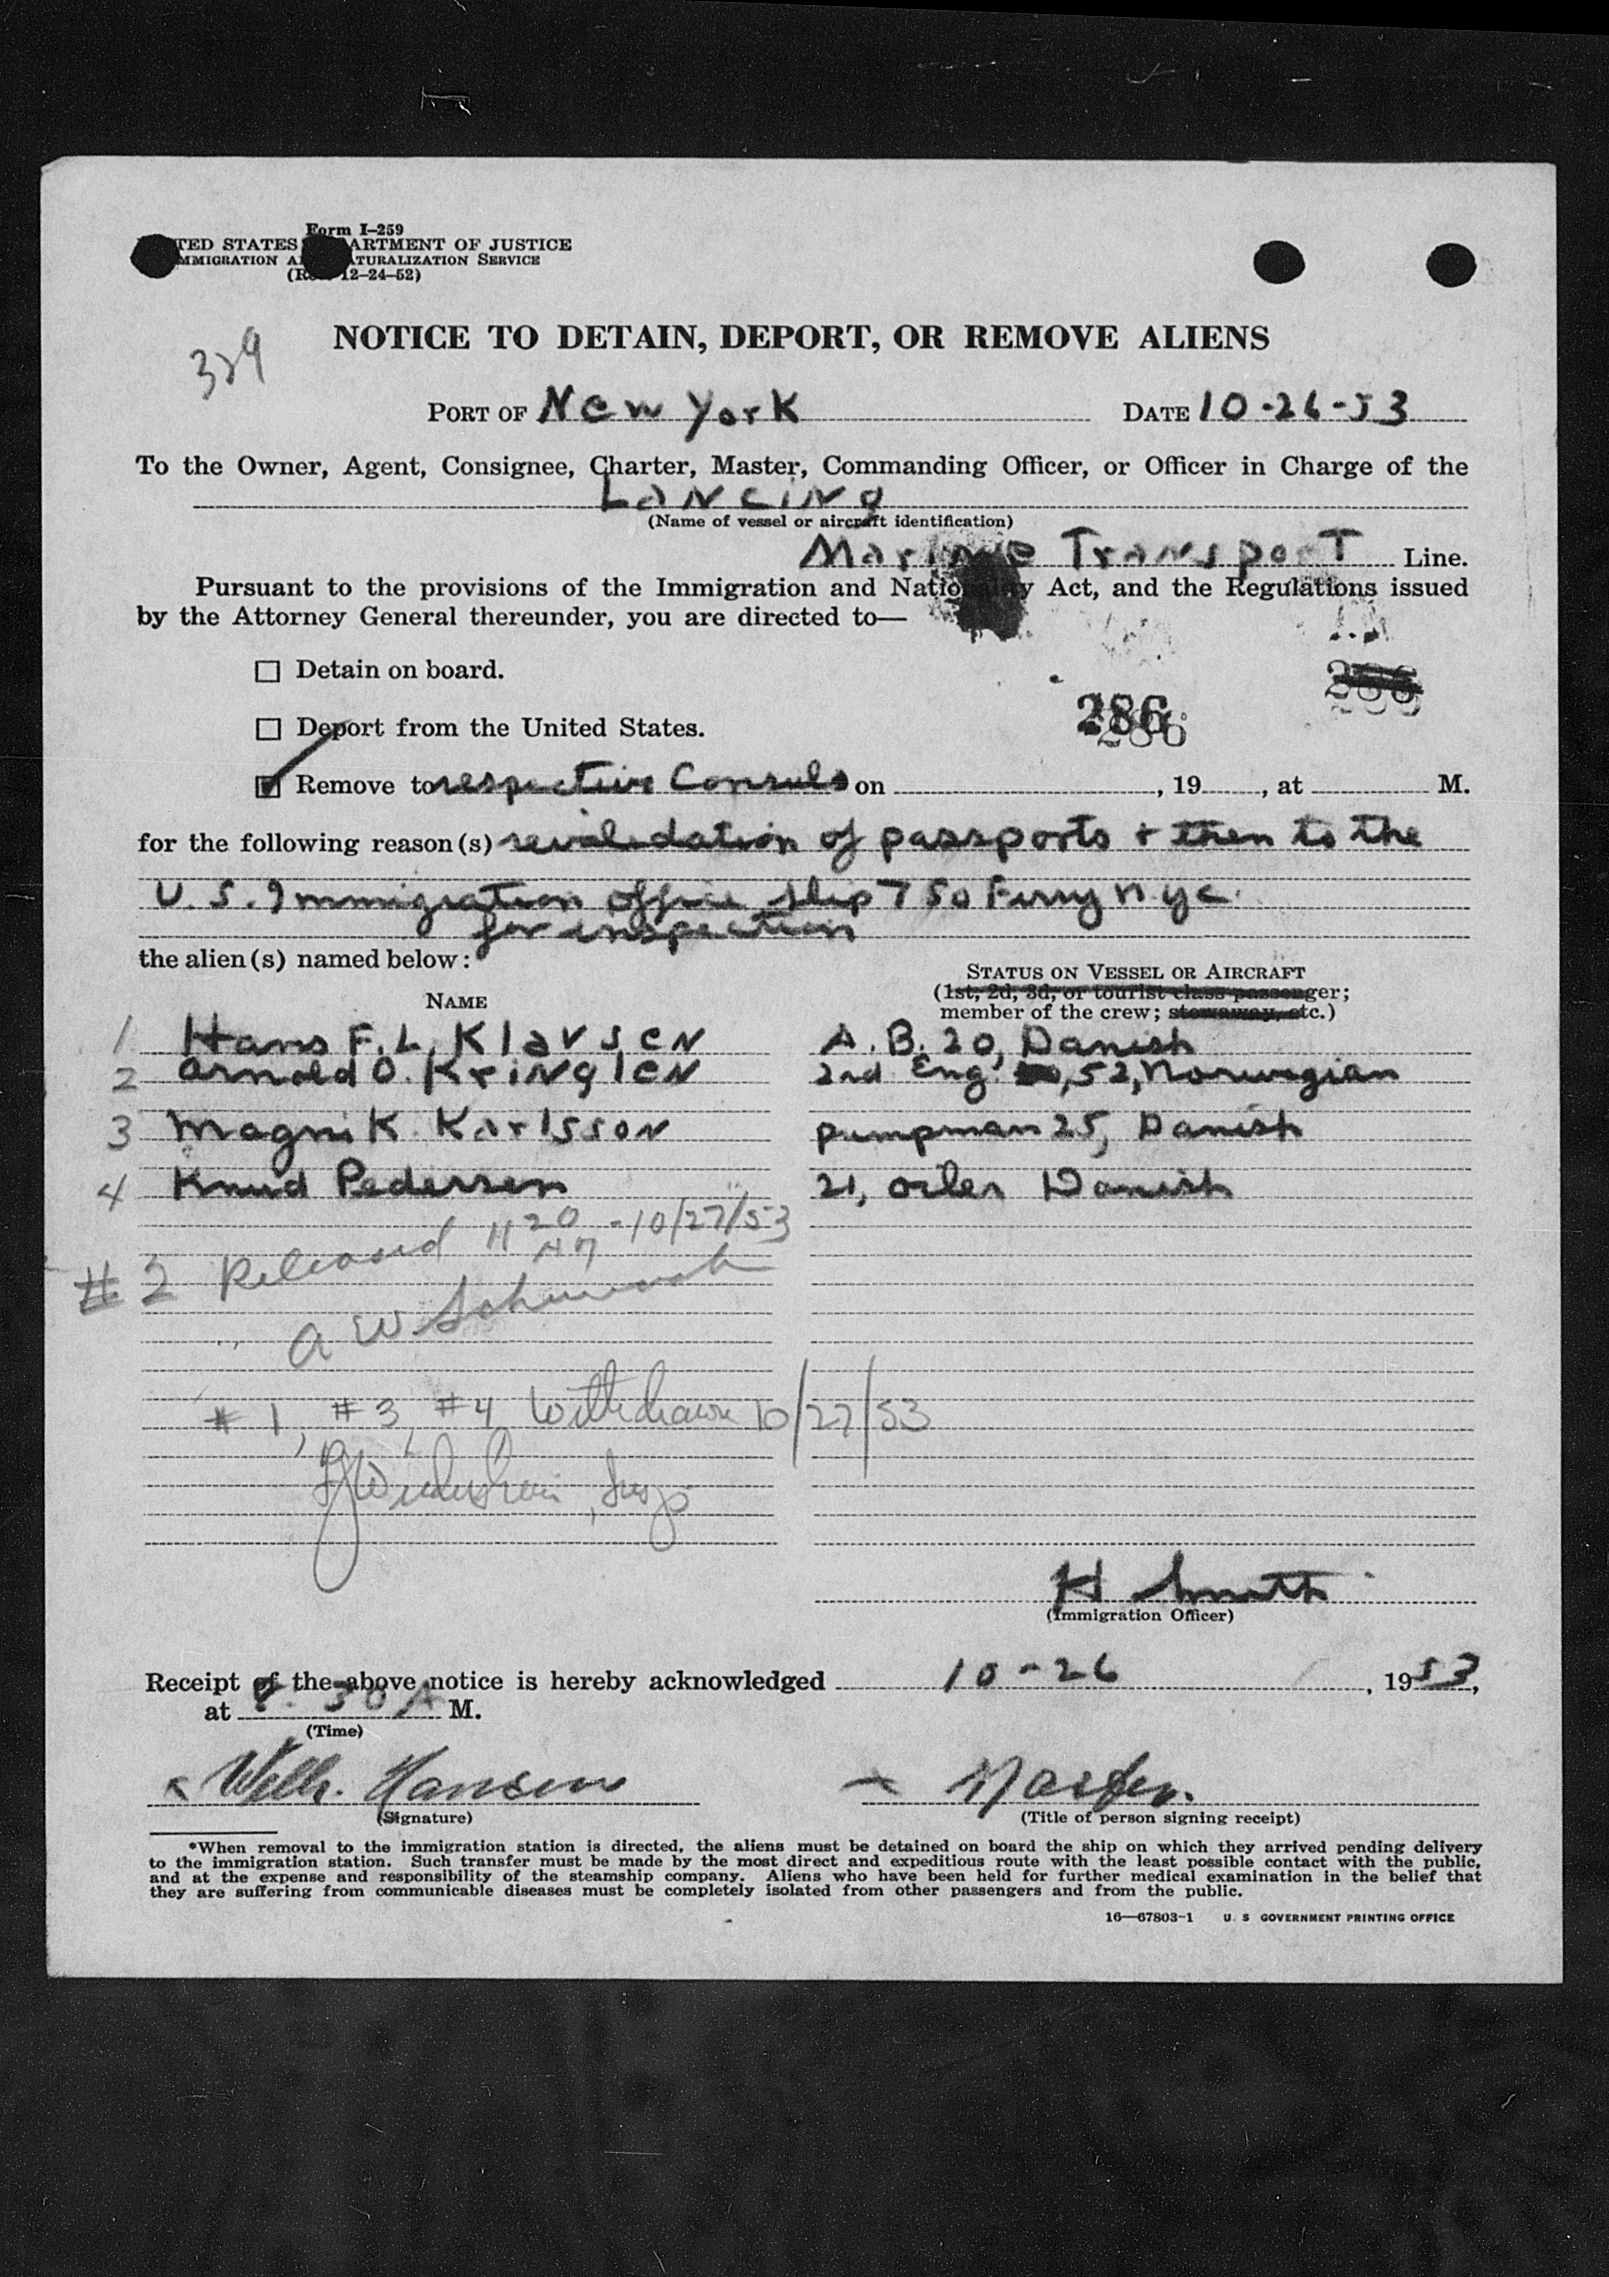 Form I-259
TED STATES ARTMENT OF JUSTICE
MMIGRATION A TURALIZATION SERVICE
12-24-52)
329
NOTICE TO DETAIN, DEPORT, OR REMOVE ALIENS
PORT OF New York DATE 10-26-53
To the Owner, Agent, Consignee, Charter, Master, Commanding Officer, or Officer in Charge of the
Lancing
(Name of vessel or aircraft identification)
Marine Transport Line.
Pursuant to the provisions of the Immigration and Nationality Act, and the Regulations issued
by the Attorney General thereunder, you are directed to—
Detain on board.
286
286
Deport from the United States.
Remove to respective Consuls on , 19 , at M.
for the following reason(s) revalidation of passports + then to the
U.S. Immigration office slip 7 So Ferry NYC.
for inspection
the alien(s) named below:
STATUS ON VESSEL OR AIRCRAFT
(1st, 2d, 3d, or tourist class passenger;
NAME
member of the crew; stowaway, etc.)
1 Hans F. L. Klausen A. B. 20, Danish
2 Arnold O. Kringlen 2nd Eng. 52, Norwegian
3 Magni K. Karlsson pumpman 25, Danish
4 Knud Pedersen 21, oiler Danish
#2 Released 11 20 AM - 10/27/53
A W
#1, #3, #4 Withdrawn 10/27/53
Insp
H Smith
(Immigration Officer)
Receipt of the above notice is hereby acknowledged 10-26, 1953,
at 30 A M.
(Time)
x Wilh. Hansen x Master.
(Signature) (Title of person signing receipt)
*When removal to the immigration station is directed, the aliens must be detained on board the ship on which they arrived pending delivery
to the immigration station. Such transfer must be made by the most direct and expeditious route with the least possible contact with the public,
and at the expense and responsibility of the steamship company. Aliens who have been held for further medical examination in the belief that
they are suffering from communicable diseases must be completely isolated from other passengers and from the public.
16—67803-1 U. S GOVERNMENT PRINTING OFFICE